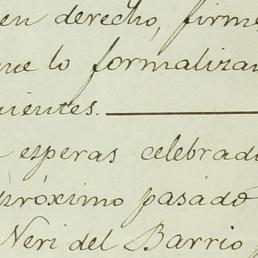 en derecho, firme
que lo formalizan
uientes.
esperas celebrada
próximo pasado
Neri del Barrio